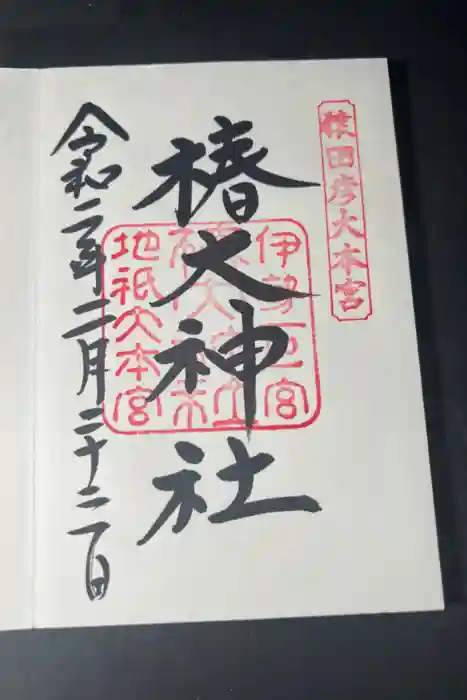 猿田彦大本宮
椿大神社
伊勢一宮
地祇大本宮
令和二年二月二十二日